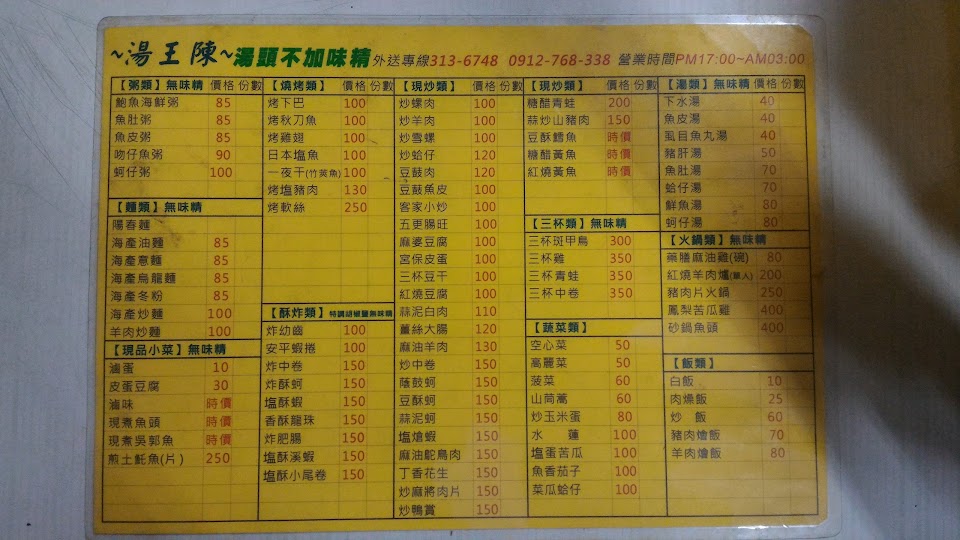 ~湯王陳~湯頭不加味精 外送專線313-6748 0912-768-338 營業時間PM17:00~AM03:00
【粥類】無味精 價格 份數
鮑魚海鮮粥 85
魚肚粥 85
魚皮粥 85
吻仔魚粥 90
蚵仔粥 100
【麵類】無味精
陽春麵
海產油麵 85
海產意麵 85
海產烏龍麵 85
海產冬粉 85
海產炒麵 100
羊肉炒麵 100
【現品小菜】無味精
滷蛋 10
皮蛋豆腐 30
滷味 時價
現煮魚頭 時價
現煮吳郭魚 時價
煎土魠魚(片) 250
【燒烤類】 價格 份數
烤下巴 100
烤秋刀魚 100
烤雞翅 100
日本塩魚 100
一夜干(竹莢魚) 100
烤塩豬肉 130
烤軟絲 250
【酥炸類】特調胡椒鹽無味精
炸幼齒 100
安平蝦捲 100
炸中卷 150
炸酥蚵 150
塩酥蝦 150
香酥龍珠 150
炸肥腸 150
塩酥溪蝦 150
塩酥小尾卷 150
【現炒類】 價格 份數
炒螺肉 100
炒羊肉 100
炒雪螺 100
炒蛤仔 120
豆鼓肉 120
豆鼓魚皮 100
客家小炒 100
五更腸旺 100
麻婆豆腐 100
宮保皮蛋 100
三杯豆干 100
紅燒豆腐 100
蒜泥白肉 110
薑絲大腸 120
麻油羊肉 130
炒中卷 150
蔭鼓蚵 150
豆酥蚵 150
蒜泥蚵 150
塩熗蝦 150
麻油鴕鳥肉 150
丁香花生 150
炒麻將肉片 150
炒鴨賞 150
【現炒類】 價格 份數
糖醋青蛙 200
蒜炒山豬肉 150
豆酥鱈魚 時價
糖醋黃魚 時價
紅燒黃魚 時價
【三杯類】無味精
三杯斑甲鳥 300
三杯雞 350
三杯青蛙 350
三杯中卷 350
【蔬菜類】
空心菜 50
高麗菜 50
菠菜 60
山茼蒿 60
炒玉米蛋 80
水蓮 100
塩蛋苦瓜 100
魚香茄子 100
菜瓜蛤仔 100
【湯類】無味精 價格 份數
下水湯 40
魚皮湯 40
虱目魚丸湯 40
豬肝湯 50
魚肚湯 70
蛤仔湯 70
鮮魚湯 80
蚵仔湯 80
【火鍋類】無味精
藥膳麻油雞(碗) 80
紅燒羊肉爐(單人) 200
豬肉片火鍋 250
鳳梨苦瓜雞 400
砂鍋魚頭 400
【飯類】
白飯 10
肉燥飯 25
炒飯 60
豬肉燴飯 70
羊肉燴飯 80